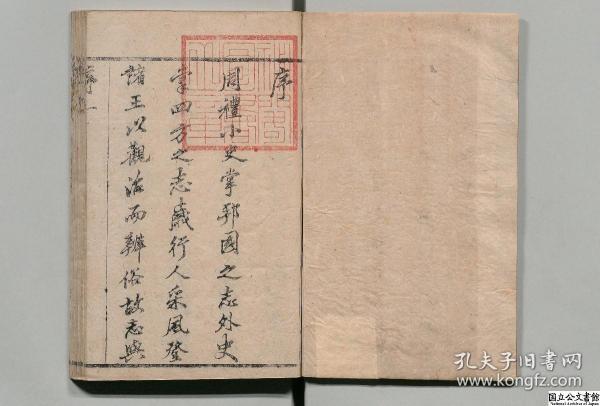 序
周禮小史掌邦國之志外史
掌四方之志歲行人采風登
諸王以觀治而辨俗故志與
序 一
孔夫子旧书网
www.kongfz.com
国立公文書館
National Archives of Japan